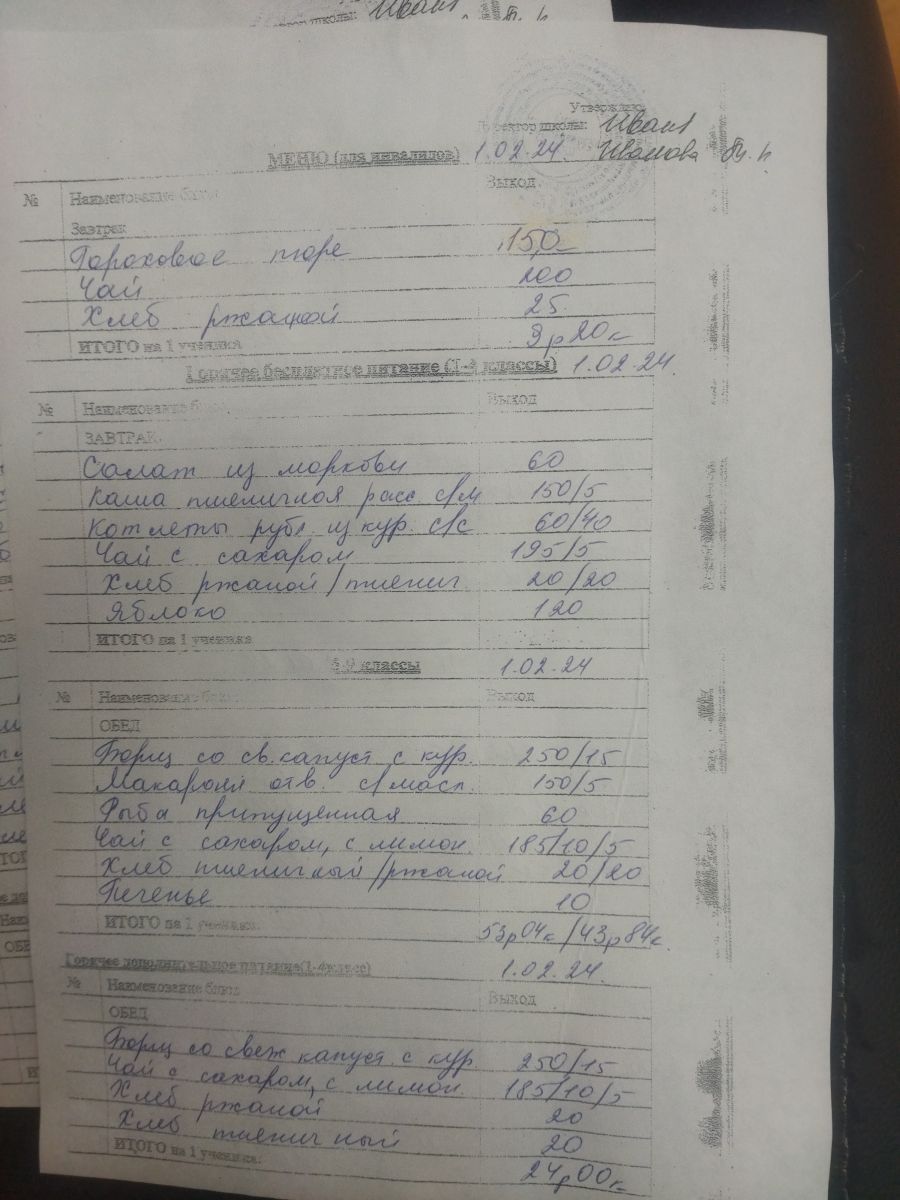 Утверждаю
Директор школы: Иванг
МЕНЮ (для инвалидов) 1.02.24. Иванова
№ Наименование блюд Выход
Завтрак
Гороховое пюре 150
Чай 200
Хлеб ржаной 25
ИТОГО на 1 ученика 9р20к
Горячее бесплатное питание (1-4 классы) 1.02.24.
№ Наименование блюд Выход
ЗАВТРАК
Салат из моркови 60
Каша пшеничная расс. с/м 150/5
Котлеты рубл. из кур. с/с 60/40
Чай с сахаром 195/5
Хлеб ржаной/пшенич. 20/20
Яблоко 120
ИТОГО на 1 ученика
5-9 классы 1.02.24
№ Наименование блюд Выход
ОБЕД
Борщ со св.капуст с кур. 250/15
Макароны отв. с/масл. 150/5
Рыба припущенная 60
Чай с сахаром, с лимон. 185/10/5
Хлеб пшеничный/ржаной 20/20
Печенье 10
ИТОГО на 1 ученика: 53р04к/43р84к.
Горячее дополнительное питание(1-4класс) 1.02.24.
№ Наименование блюд Выход
ОБЕД
Борщ со свеж капуст. с кур 250/15
Чай с сахаром, с лимон. 185/10/5
Хлеб ржаной 20
Хлеб пшеничный 20
ИТОГО на 1 ученика: 24р00к